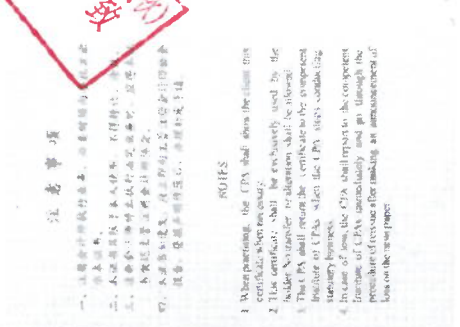 注意事项
一、注册会计师执行业务，必要时须向委托方出
示本证书。
二、本证书只限于本人使用，不得转让、涂改。
三、注册会计师停止执行法定业务时，应将本证
书缴还主管注册会计师协会。
四、本证书如遗失，应立即向主管注册会计师协会
报告，登报声明作废后，办理补发手续。
NOTES
1. When practising, the CPA shall show the client this
certificate when necessary.
2. This certificate shall be exclusively used by the
holder. No transfer or alteration shall be allowed.
3. The CPA shall return the certificate to the competent
Institute of CPAs when the CPA stops conducting
statutory business.
4. In case of loss, the CPA shall report to the competent
Institute of CPAs immediately and go through the
procedure of reissue after making an announcement of
loss on the newspaper.